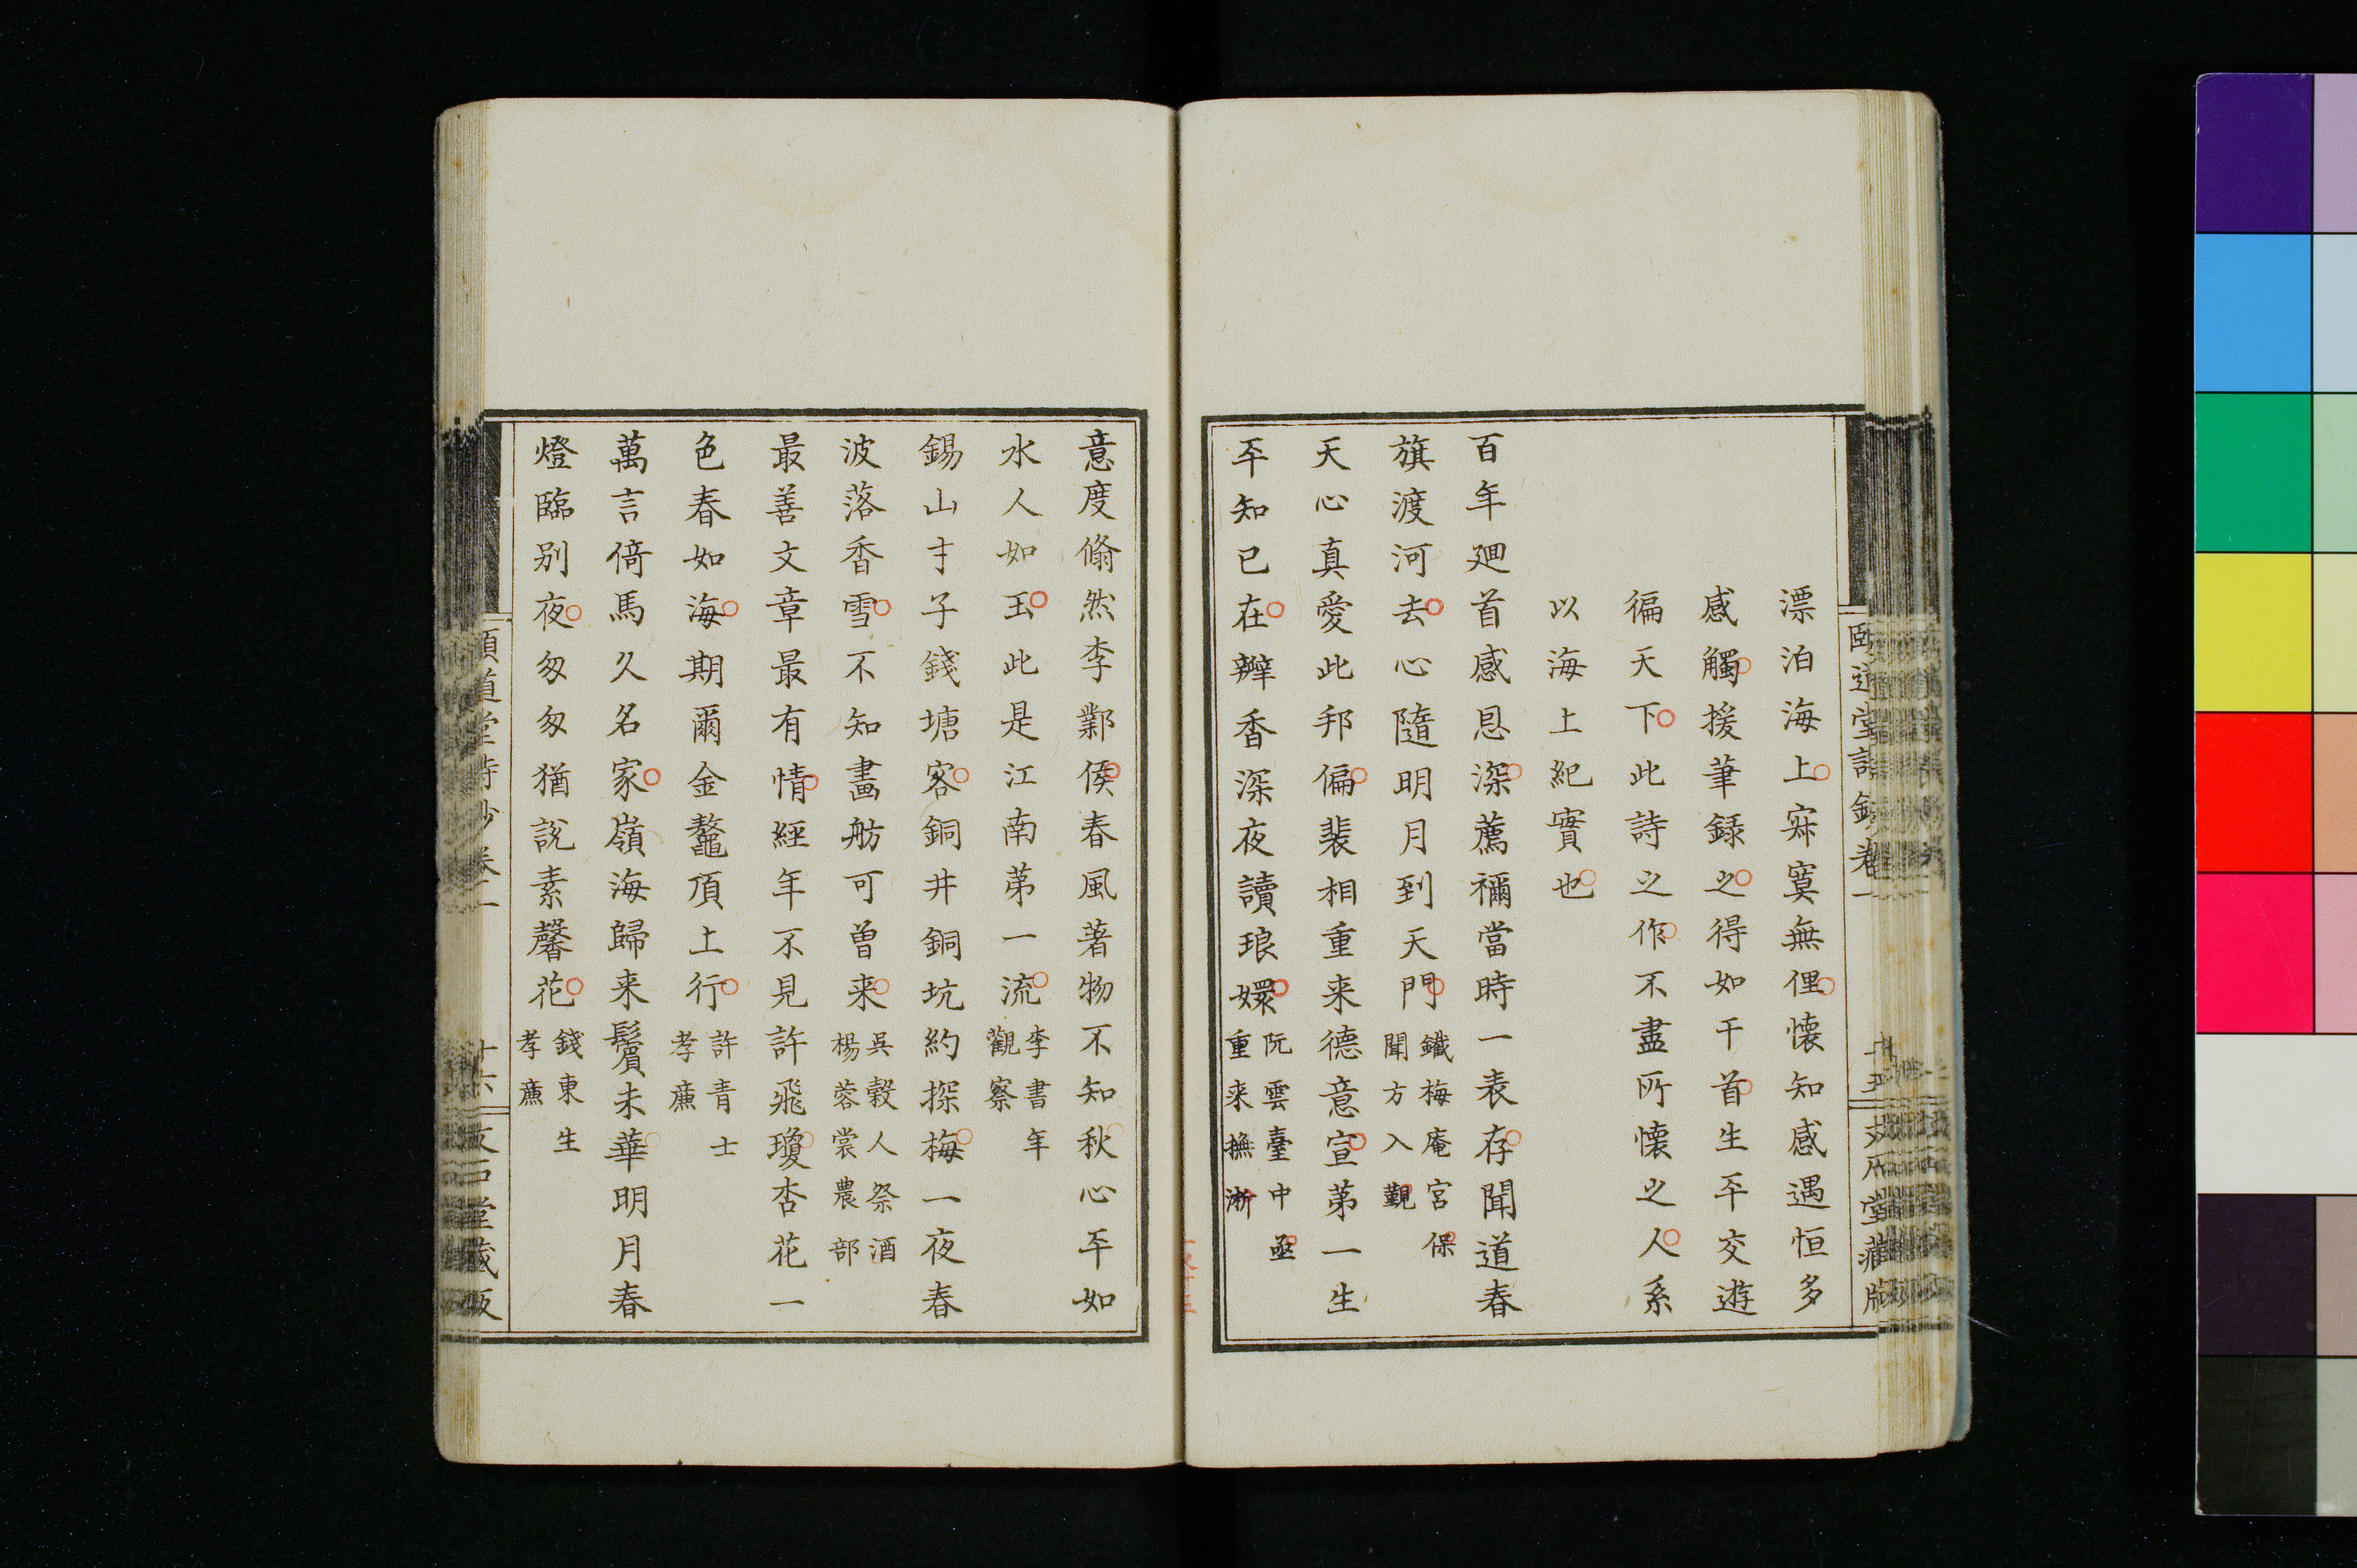 漂泊海上寂寞無俚懐知感遇恒多
感觸援筆録之得如干首生平交遊
徧天下此詩之作不盡所懐之人系
以海上紀實也
百年廻首感恩深薦禰當時一表存聞道春
旗渡河去心隨明月到天門鐵梅庵宮保
聞方入覲
天心真愛此邦偏裴相重来德意宣第一生
平知已在辦香深夜讀琅嬛阮雲臺中丞
重来撫浙
意度翛然李鄴侯春風著物不知秋心平如
水人如玉此是江南第一流李書年
觀察
錫山才子錢塘客銅井銅坑約探梅一夜春
波落香雪不知畫舫可曾来吳榖人祭酒
楊蓉裳農部
最善文章最有情經年不見許飛瓊杏花一
色春如海期爾金鼇頂上行許青士
孝廉
萬言倚馬久名家嶺海歸来鬢未華明月春
燈臨别夜匆匆猶說素馨花錢東生
孝廉
頤道堂詩鈔卷二
十六